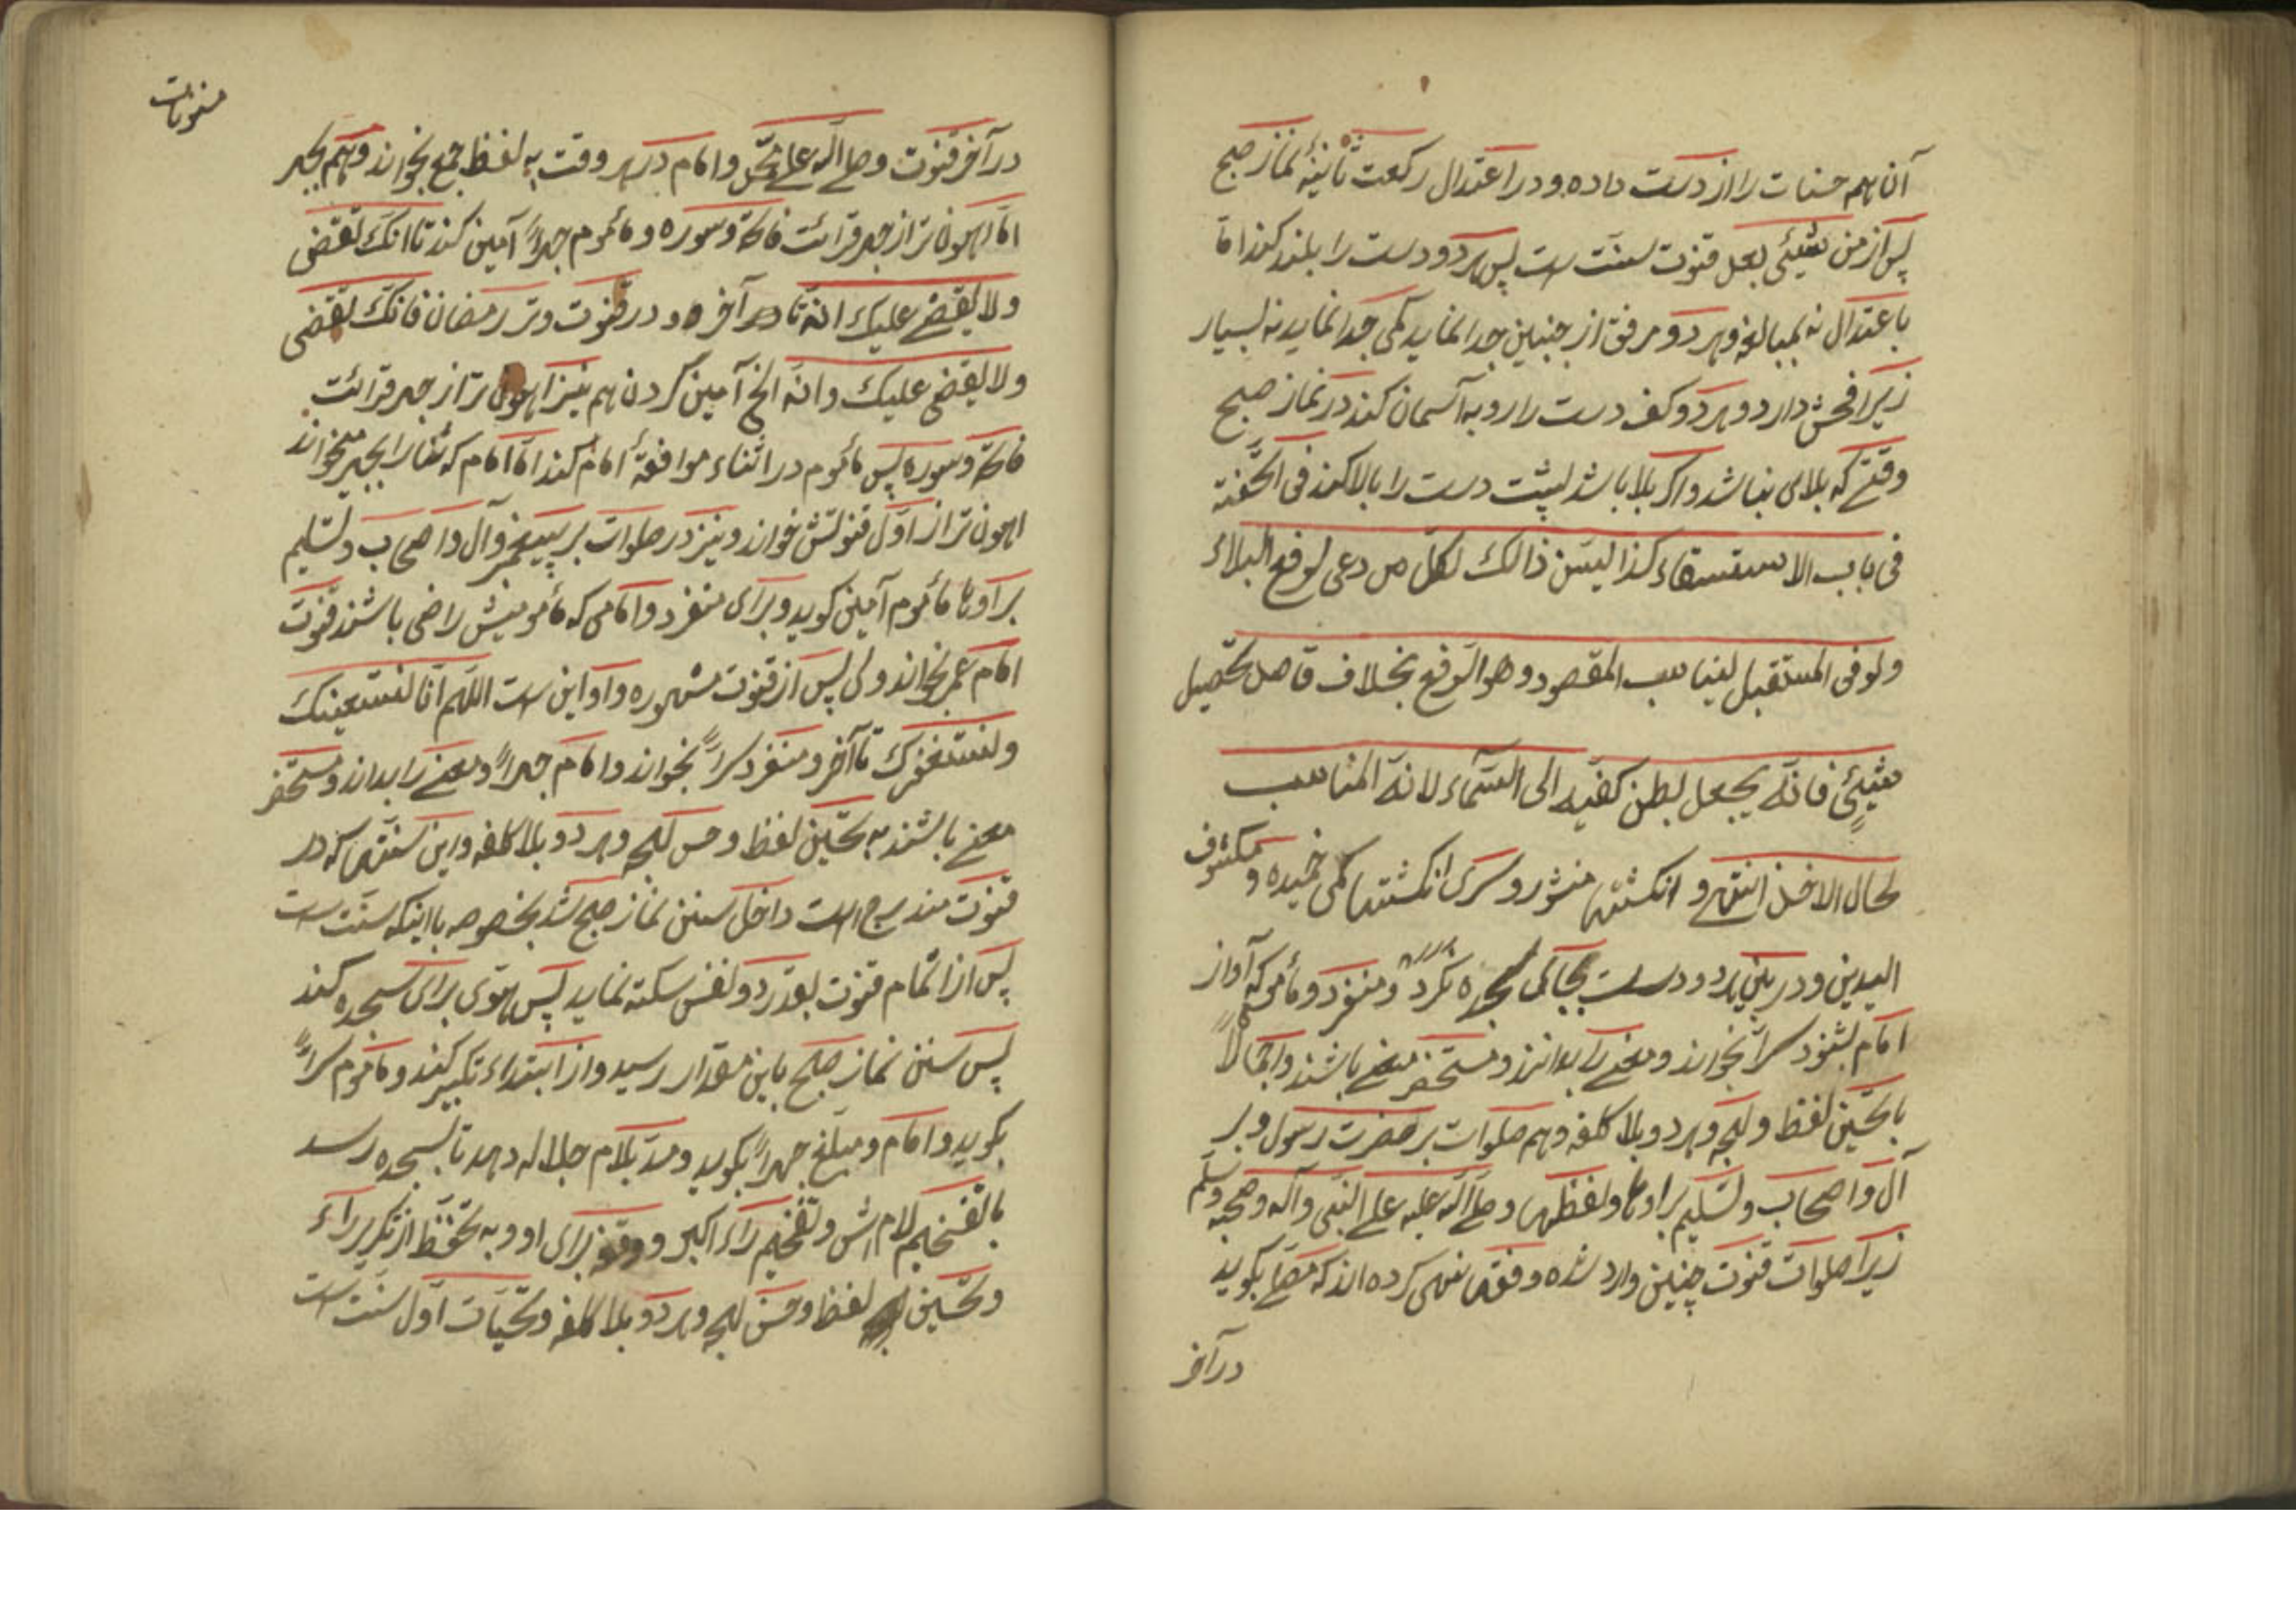 آن همه حسنات را از دست داده و در اعتدال رکعت ثانیهٔ نماز صبح
پس از من شیئی بعل قنوت سنت است پس هر دو دست را بلند کند اما
باعتدال نه بمبالغه و هر دو مرفق از جنبین جدا نماید کمی جدا نماید نه بسیار
زیرا فحش دارد و هر دو کف دست را رو به آسمان کند در نماز صبح
وقتے که بلای نباشد و اگر بلا باشد پشت دست را بالا کند فی التحفة
فی باب الاستسقاء کذا لیسن ذالک لکل من دعی لرفع البلاء
ولو فی المستقبل لیناسب المقصود وهو الرفع بخلاف قاصد تحصیل
شیئٍ فانّه یجعل بطن کفیه الی السّماء لانّه المناسب
لحال الاخذ انتهی و انگشتها منشور و سری انگشتها کمی خمیده و مکشوف
الیدین و در بین هر دو دست بجاکی نکرد و منفرد و مأمومی که آواز
امام نشنود سراً بخواند و معنے را بدانند و مستحضر معنے باشند و اجمالاً
با تحسین لفظ و لهجه و هر دو بلا کلفه و هم صلوات بر حضرت رسول و بر
آل و اصحاب و تسلیم بر اوها و لفظها و صلے الله علیه علے النبی وآله وصحبه وسلم
زیرا صلوات قنوت چنین وارد شده و فقها نهی کرده اند که بگوید
در آخر
در آخر قنوت و صلے الله علے محمّد و امام در هر وقت به لفظ جمع بخواند و هم بجهر
امّا اهون تر از جهر قرائت فاتحه و سوره و مأموم جهراً آمین کند تا انّک تقضی
ولا یقضی علیک انّه تا آخره و در قنوت وتر رمضان فانّک تقضی
ولا یقضی علیک وانّه الخ آمین کردن هم نیز اهون تر از جهر قرائت
فاتحه و سوره پس مأموم در اثناء موافقهٔ امام کند امّا امام که ثنا را بجهر میخواند
اهون تر از اوّل قنوتش خواند و نیز در صلوات بر پیغمبر و آل و اصحاب و تسلیم
بر اوها مأموم آمین گوید و برای منفرد و امامی که مأمومینش راضی باشند قنوت
امام عمر بخواند ولی پس از قنوت مشهوره و او این است اللّهم انّا نستعینک
ونستغفرک تا آخر و منفرد سرّاً بخواند و امام جهراً و معنے را بداند و مستحضر
معنے باشند به تحسین لفظ و حسن لهجه و هر دو بلا کلفه و این سنّتها که در
قنوت مندرج است داخل سنن نماز صبح شد بخصوصه با اینکه سنّت است
پس از اتمام قنوت بقدر دو نفس سکته نماید پس هوی برای سجده کند
پس سنن نماز صبح باین مقدار رسید و از ابتداء تکبیر کند و مأموم سرّاً
بگوید و امام و مبلغ جهراً بگوید و مدّ بلام جلاله دهد تا بسجده رسد
با تفخیم لام اش و تفخیم راء اکبر و وقف برای او و به تحفّظ از تکریر راء
و تحسین لفظ و حسن لهجه و هر دو بلا کلفه و تحیّات اوّل سنّت است